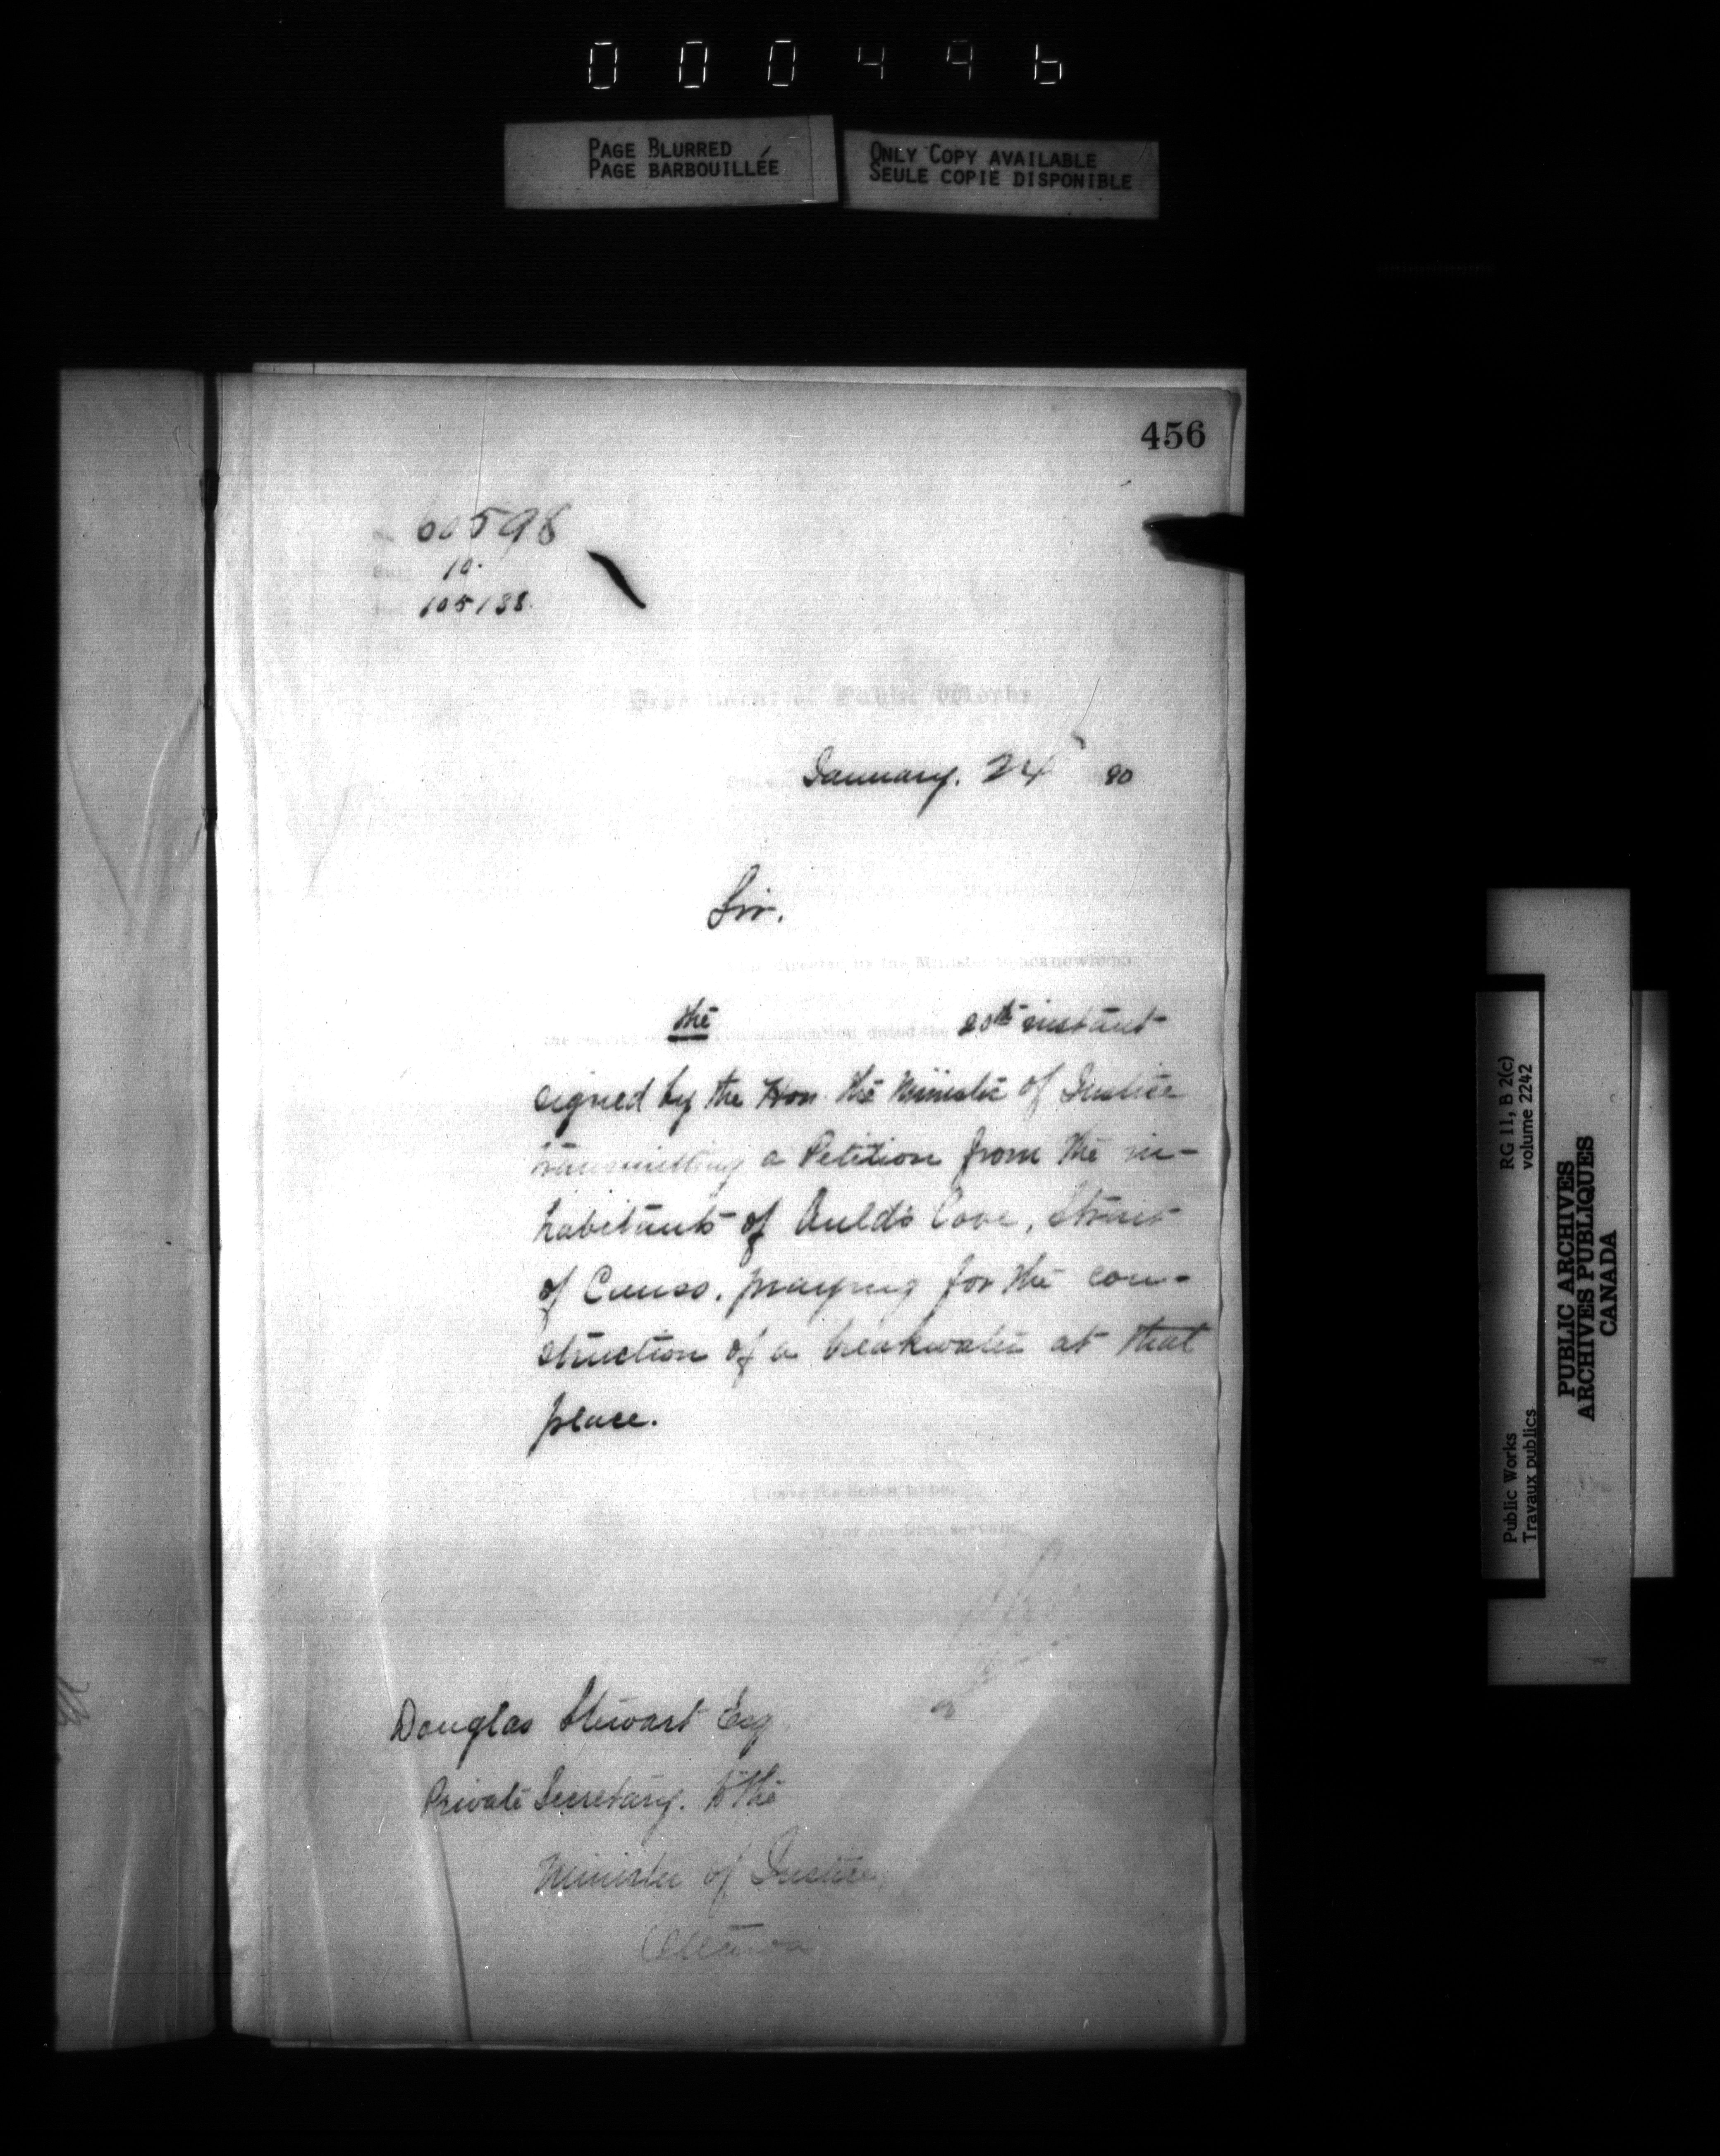 000496
PAGE BLURRED
PAGE BARBOUILLÉE
ONLY COPY AVAILABLE
SEULE COPIE DISPONIBLE
456
60598
10.
105138.
Department of Public Works
January. 24 90
Sir.
directed by the Minister to acknowledge
the 20th instant
the receipt of communication dated the
signed by the Hon. the Minister of Justice
transmitting a Petition from the in-
habitants of Auld's Cove, Strait
of Canso, praying for the con-
struction of a breakwater at that
place.
I have the honor to be,
obedient servant,
Douglas Stewart Esq
Private Secretary. to the
Minister of Justice
Ottawa
RG 11, B 2(c)
volume 2242
Public Works
Travaux publics
PUBLIC ARCHIVES
ARCHIVES PUBLIQUES
CANADA